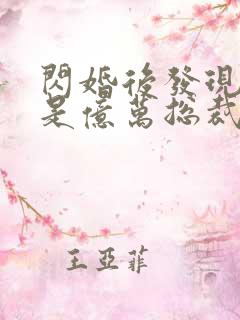 閃婚後發現
是億萬總裁
王亞菲